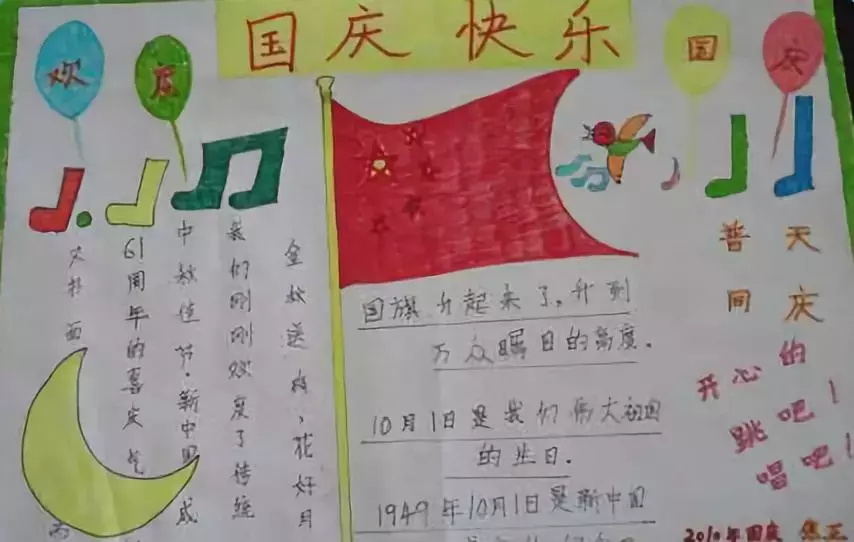 国庆快乐
欢度
国庆
金秋送爽,花好月
我们刚刚欢度了传统
中秋佳节·新中国成
61周年的喜庆气
扑面
国旗升起来了,升到
万众瞩目的高度。
10月1日是我们伟大祖国
的生日.
1949年10月1日是新中国
普天
同庆
开心的
跳吧!
唱吧!
2010年国庆